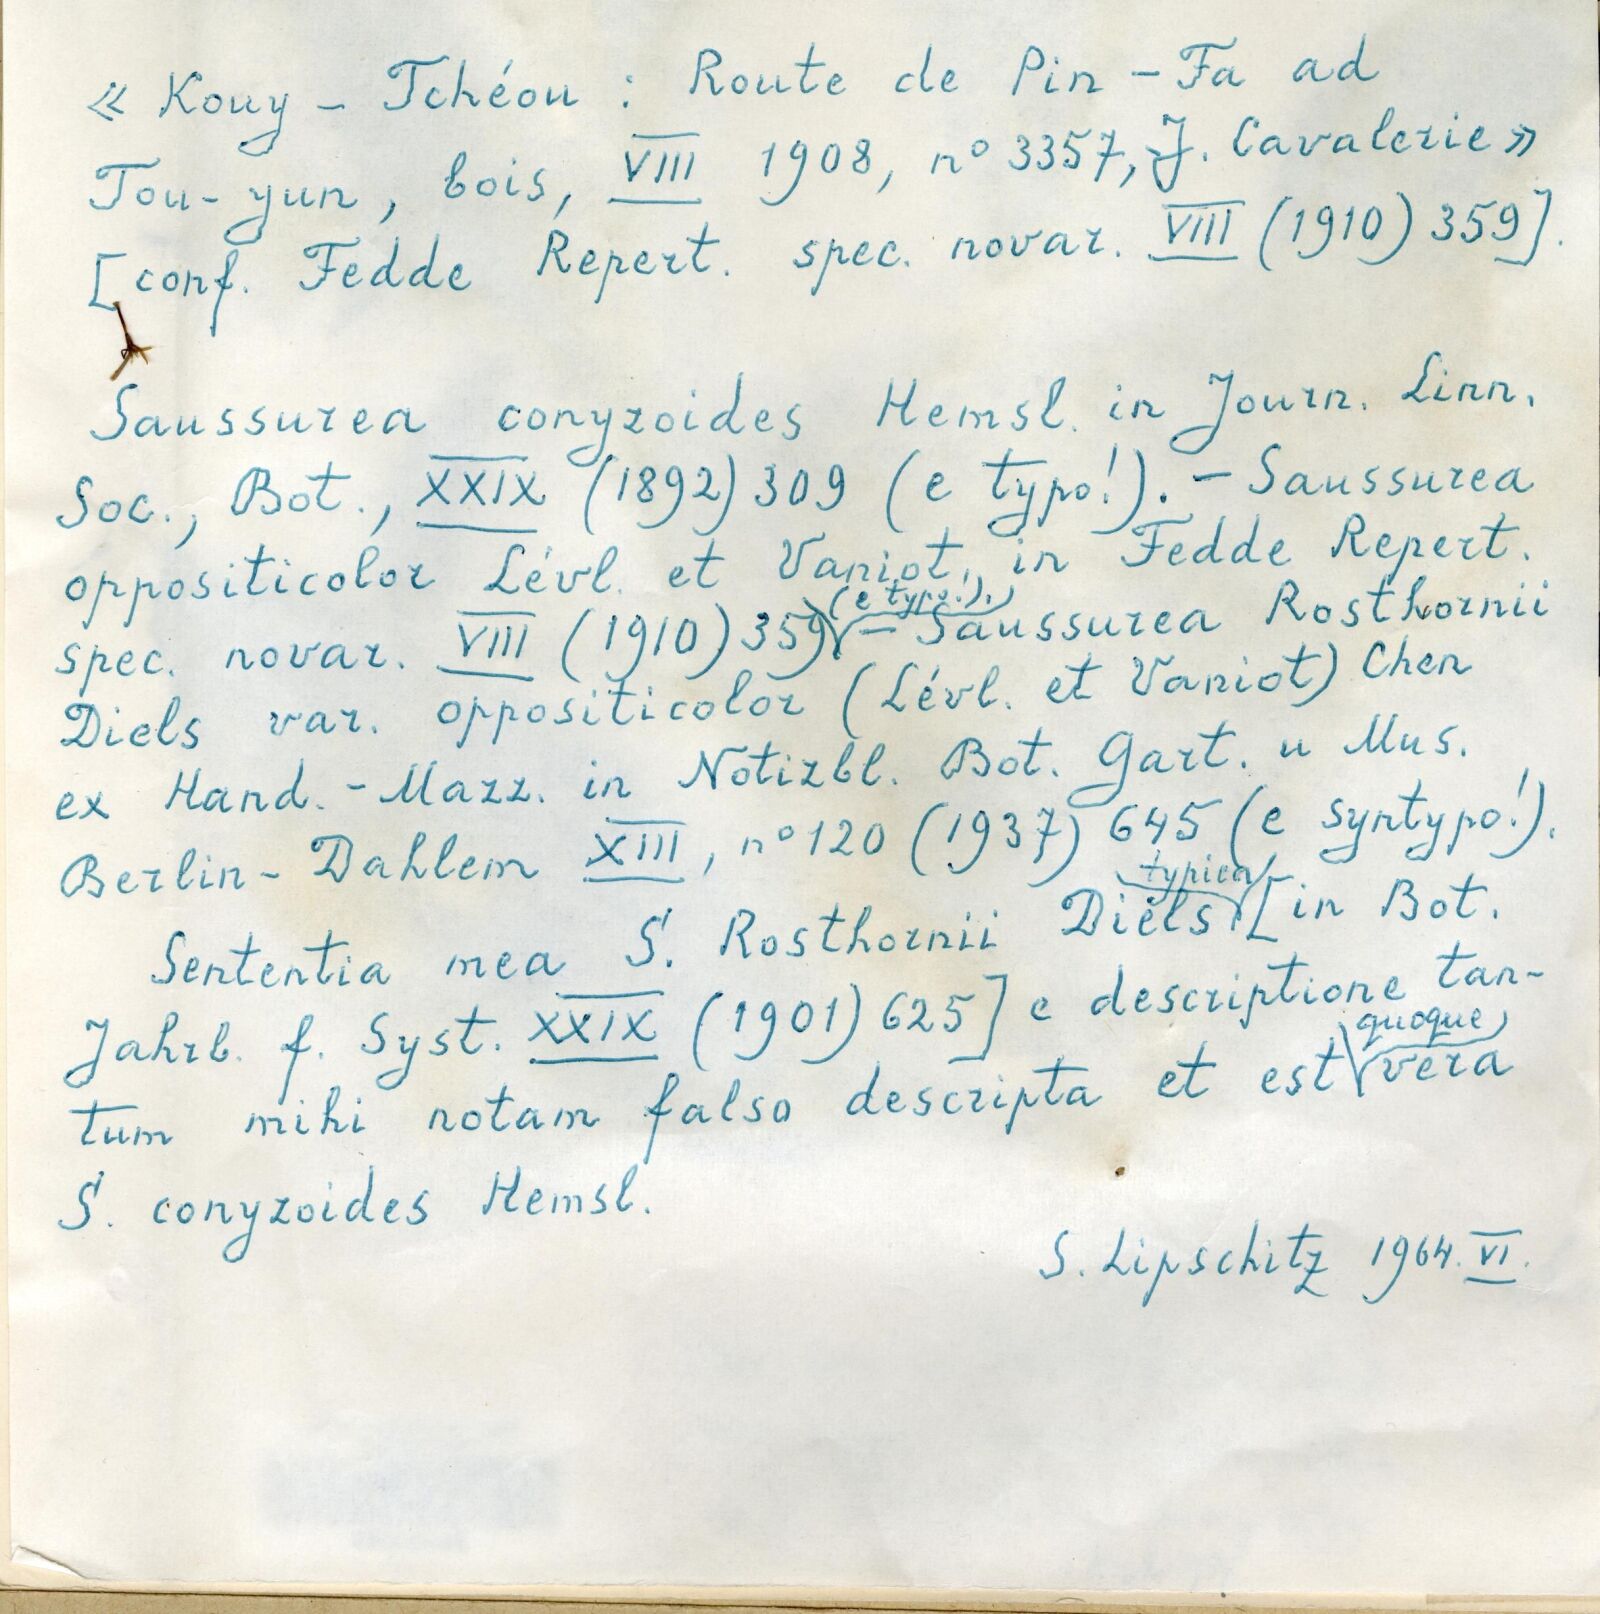 « Kouy - Tchéou : Route de Pin - Fa ad
Tou-yun, bois, VIII 1908, n° 3357, J. Cavalerie »
[conf. Fedde Repert. spec. novar. VIII (1910) 359].
Saussurea conyzoides Hemsl. in Journ. Linn.
Soc., Bot., XXIX (1892) 309 (e typo!). - Saussurea
oppositicolor Lévl. et Vaniot, in Fedde Repert.
(e typo!).
spec. novar. VIII (1910) 359 - Saussurea Rosthornii
Diels var. oppositicolor (Lévl. et Vaniot) Chen
ex Hand. - Mazz. in Notizbl. Bot. Gart. u Mus.
Berlin - Dahlem XIII, n° 120 (1937) 645 (e syntypo!).
typica
Sententia mea S. Rosthornii Diels [in Bot.
Jahrb. f. Syst. XXIX (1901) 625] e descriptione tan-
quoque
tum mihi notam falso descripta et est vera
S. conyzoides Hemsl.
S. Lipschitz 1964. VI.